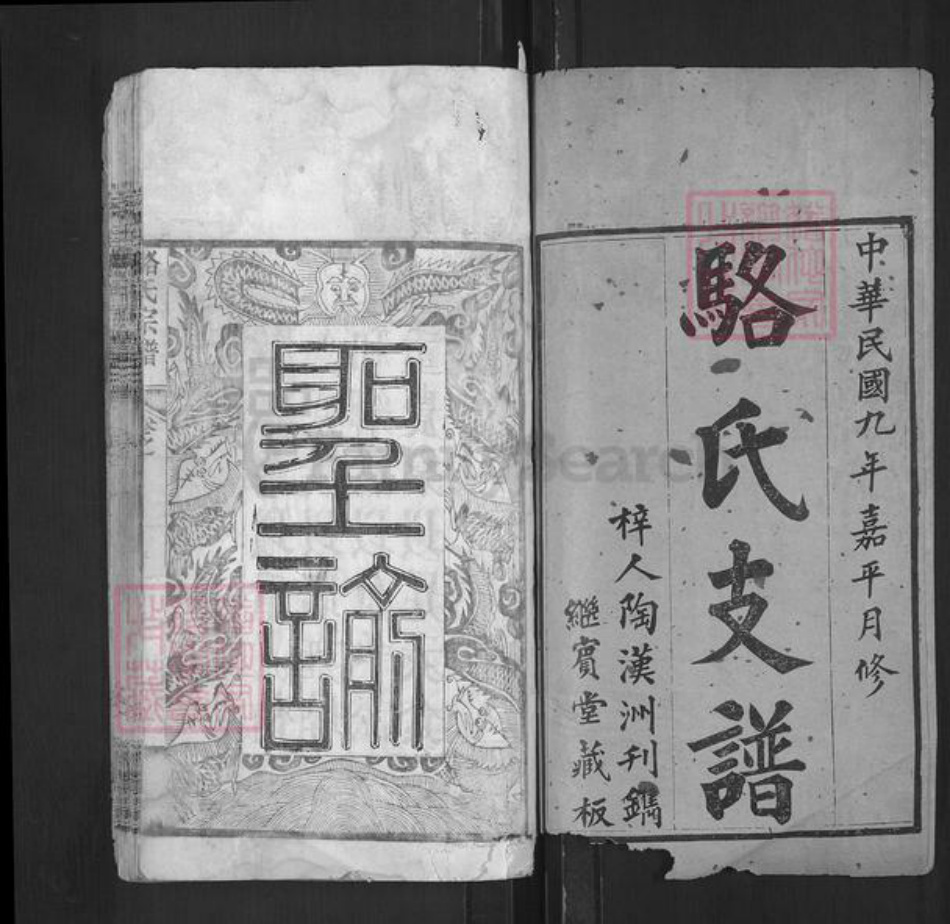 中華民國九年嘉平月修
駱氏支譜
梓人陶漢洲刊鐫
繼賓堂藏板
聖諭
駱氏宗譜